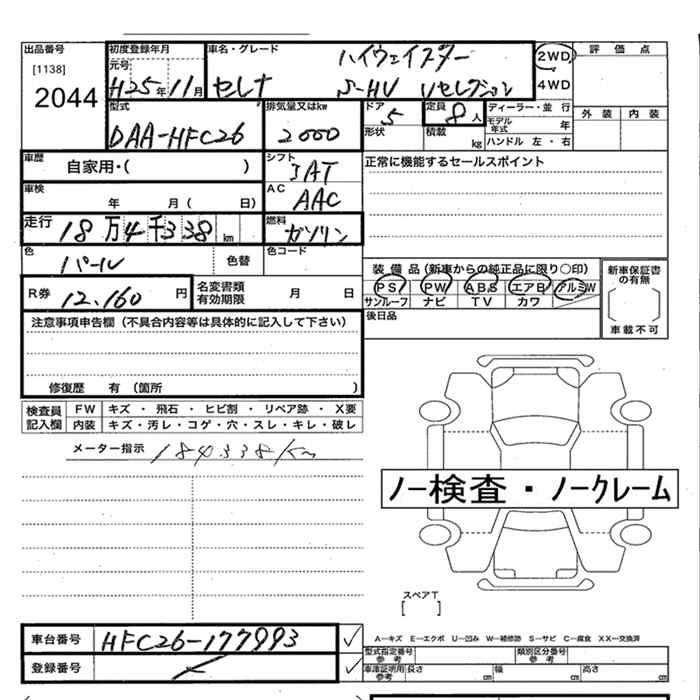 出品番号 初度登録年月 車名・グレード ハイウェイスター 2WD 評価点
[1138] 元号
2044 H25年11月 セレナ S-HV Vセレクション 4WD
型式 排気量又はkw ドア 5 定員 8人 ディーラー・並行 外装 内装
DAA-HFC26 2000 形状 積載 kg モデル年式 年
ハンドル 左・右
車歴 自家用・( ) シフト AT 正常に機能するセールスポイント
車検 年 月( 日) AC AAC
走行 18万4千338km 燃料 ガソリン
色 パール 色替 色コード
装備品(新車からの純正品に限り〇印) 新車保証書の有無
R券 12,160円 名変書類有効期限 月 日 PS PW ABS エアB アルミW
サンルーフ ナビ TV カワ
注意事項申告欄(不具合内容等は具体的に記入して下さい) 後日品 車載不可
修復歴 有(箇所 )
検査員記入欄 FW キズ・飛石・ヒビ割・リペア跡・X要
内装 キズ・汚レ・コゲ・穴・スレ・キレ・破レ
メーター指示 184,338km
ノー検査・ノークレーム
スペアT
[ ]
車台番号 HFC26-177993 A―キズ E―エクボ U―凹み W―補修跡 S―サビ C―腐食 XX―交換済
型式指定番号 参考 類別区分番号 参考
登録番号 車庫証明用 参考 長さ cm 幅 cm 高さ cm